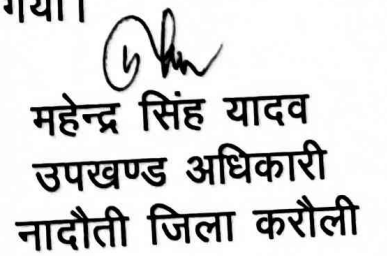 गया।
महेन्द्र सिंह यादव
उपखण्ड अधिकारी
नादौती जिला करौली